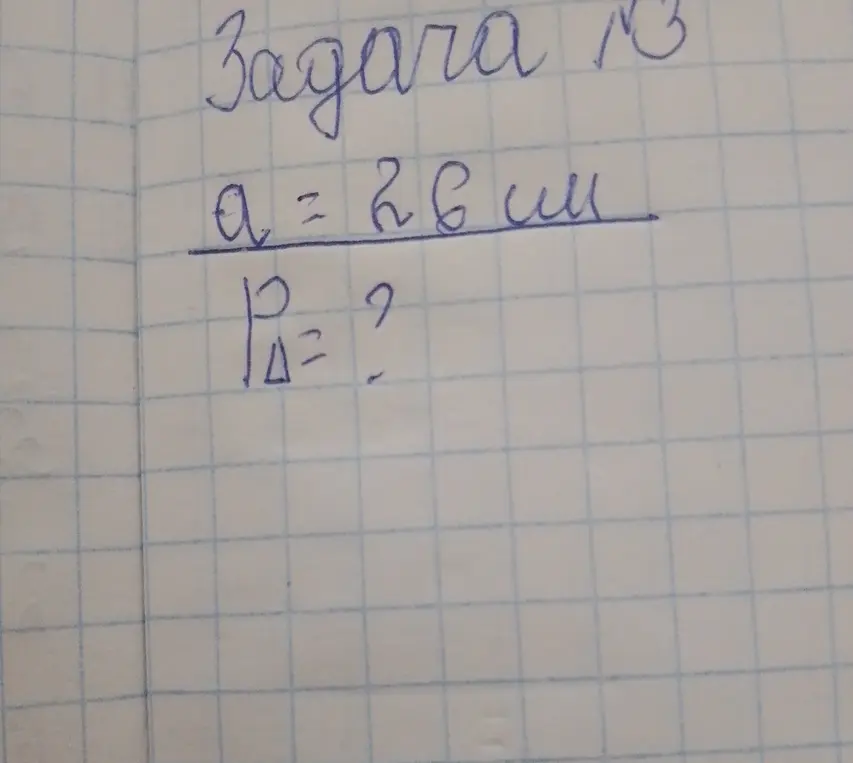 Задача №3
a = 26 см
P△ = ?